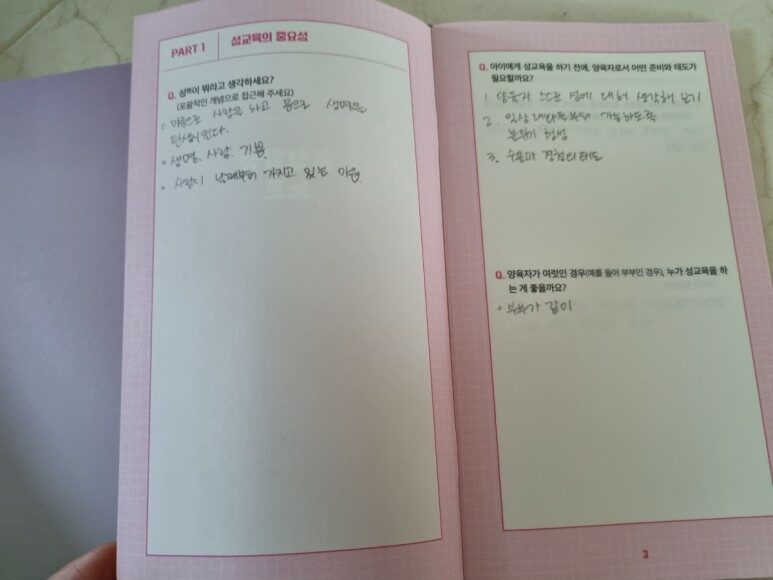 PART 1 성교육의 중요성
Q. 성性이 뭐라고 생각하세요?
(포괄적인 개념으로 접근해 주세요)
◦ 마음으로 사랑을 하고 몸으로 생명을
탄생시킨다.
◦ 생명, 사랑, 기쁨
◦ 사람이 날때부터 가지고 있는 마음.
Q. 아이에게 성교육을 하기 전에, 양육자로서 어떤 준비와 태도가
필요할까요?
1. 양육자 스스로 성에 대해 생각해 보기
2. 일상 대화속부터 가능하도록
분위기 형성
3. 수용과 경청의 태도
Q. 양육자가 여럿인 경우(예를 들어 부부인 경우), 누가 성교육을 하
는 게 좋을까요?
◦ 부부가 같이
3